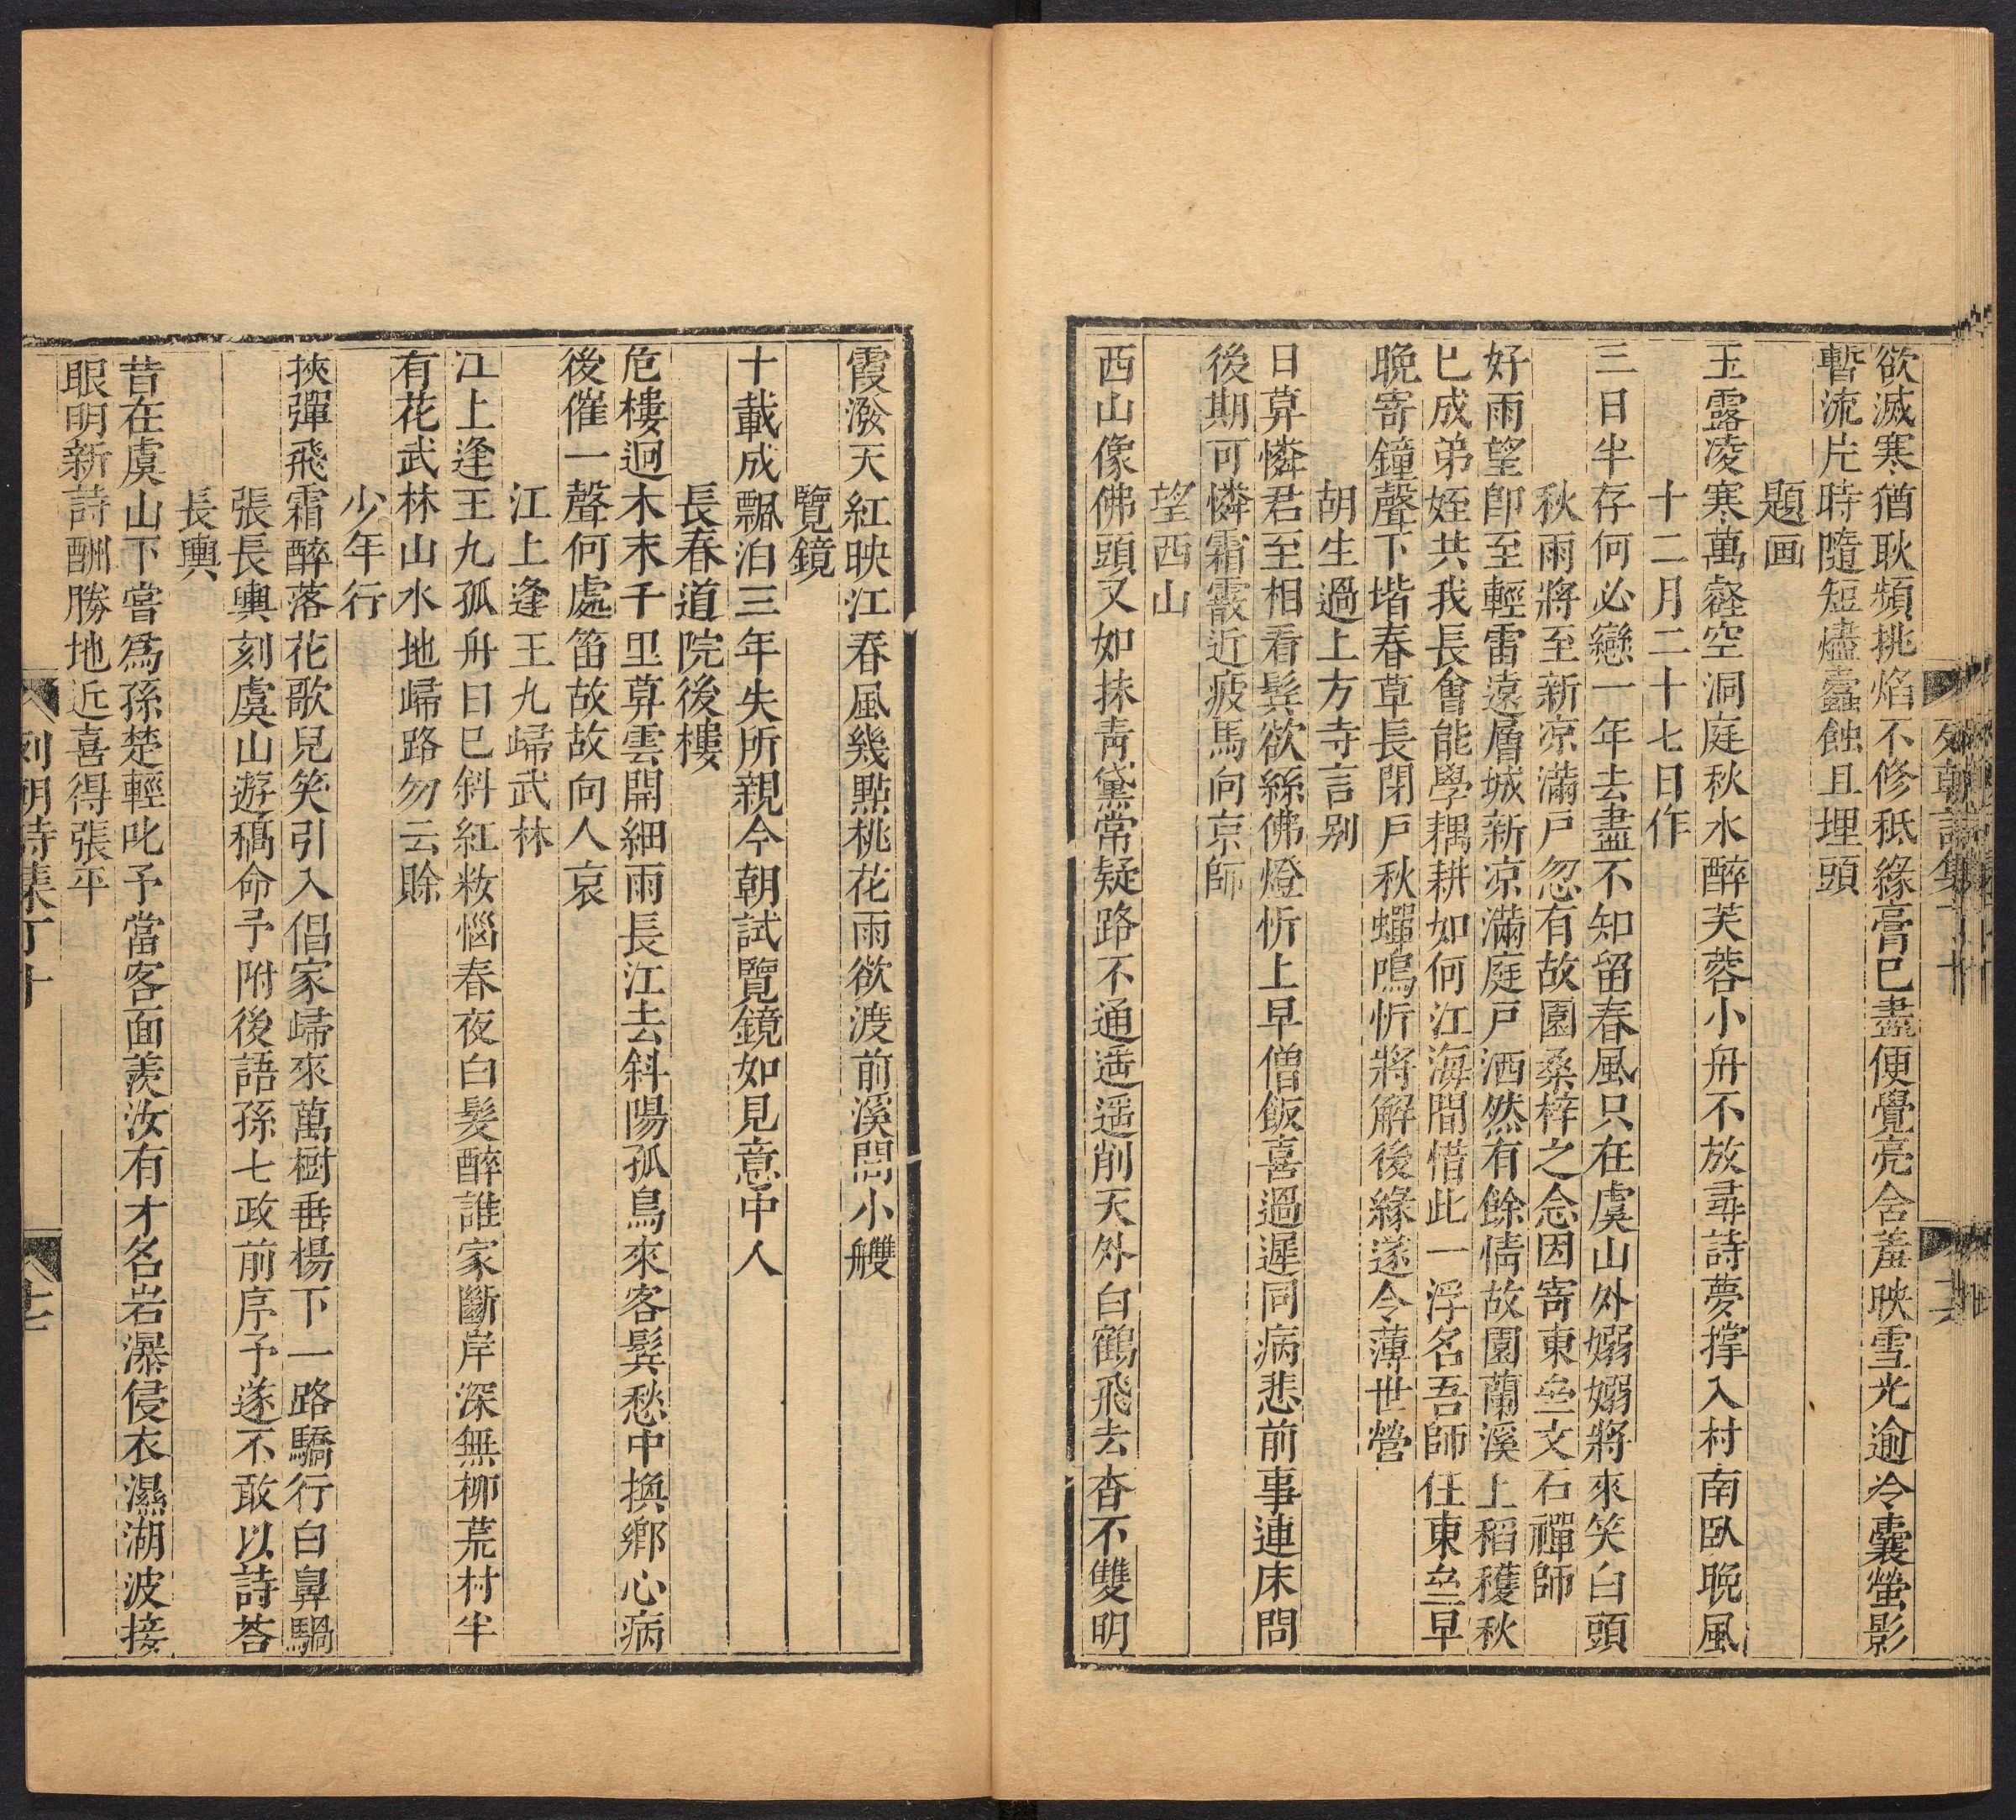 欲滅寒猶耿頻挑焰不修秪緣膏已盡便覺亮含羞映雪光逾冷囊螢影
暫流片時隨短燼蠹蝕且埋頭
題画
玉露凌寒萬壑空洞庭秋水醉芙蓉小舟不放尋詩夢撑入村南臥晚風
十二月二十七日作
三日半存何必戀一年去盡不知留春風只在虞山外嫋嫋將來笑白頭
秋雨將至新凉滿戶忽有故園桑梓之念因寄東𡊮文石禪師
好雨望卽至輕雷遠層城新凉滿庭戶洒然有餘情故園蘭溪上稻穫秋
已成弟姪共我長會能學耦耕如何江海間惜此一浮名吾師任東𡊮早
晚寄鐘聲下堦春草長閉戶秋蟬鳴忻將解後緣遂令薄世營
胡生過上方寺言别
日算憐君至相看髩欲絲佛燈忻上早僧飯喜過遲同病悲前事連床問
後期可憐霜霰近疲馬向京師
望西山
西山像佛頭又如抹靑黛常疑路不通遥遥削天外白鶴飛去杳不雙明
霞潑天紅映江春風幾點桃花雨欲渡前溪問小艭
覽鏡
十載成飄泊三年失所親今朝試覽鏡如見意中人
長春道院後樓
危樓逈木末千里算雲開細雨長江去斜陽孤鳥來客髩愁中換鄉心病
後催一聲何處笛故故向人哀
江上逢王九歸武林
江上逢王九孤舟日已斜紅粧惱春夜白髮醉誰家斷岸深無柳荒村半
有花武林山水地歸路勿云賒
少年行
挾彈飛霜醉落花歌兒笑引入倡家歸來萬樹垂楊下一路驕行白鼻騧
張長輿刻虞山遊稿命予附後語孫七政前序予遂不敢以詩荅
長輿
昔在虞山下嘗爲孫楚輕叱予當客面羨汝有才名岩瀑侵衣濕湖波接
眼明新詩酬勝地近喜得張平
列朝詩集丁十
七